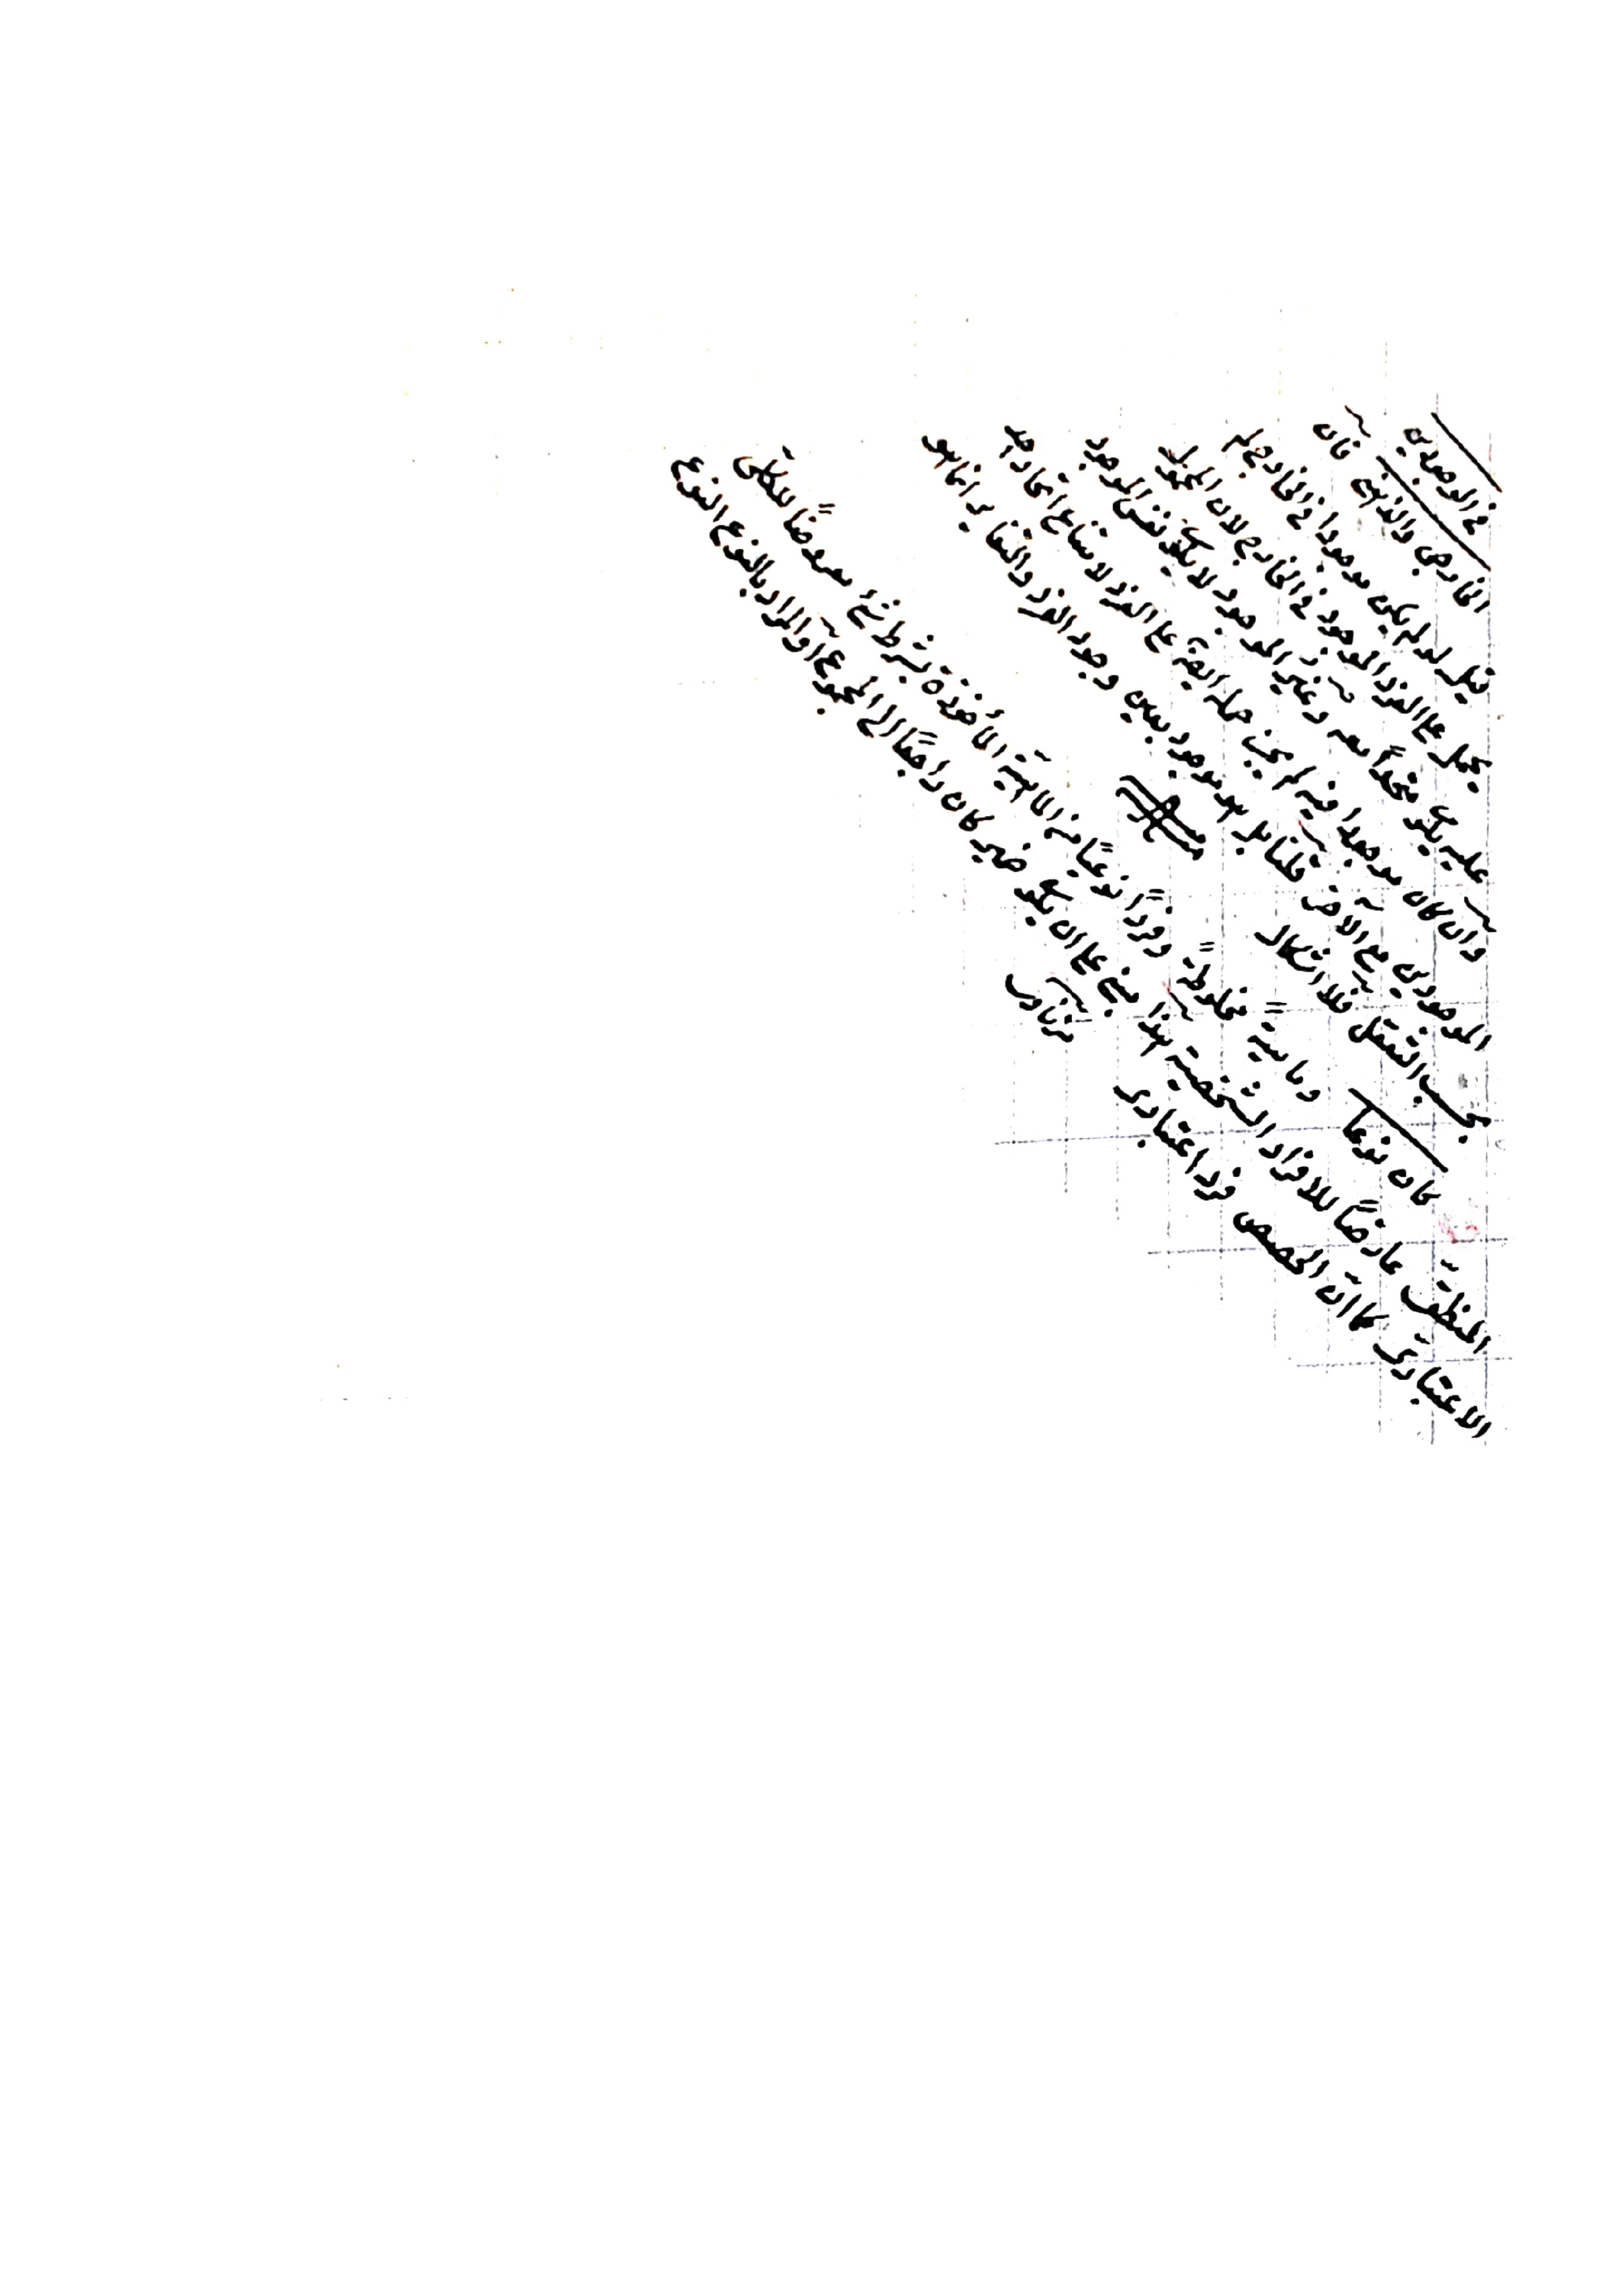 في الوجودين
الخارجي والذهني فان
قيل لو لم يكن موجودا في الخارج لم
يحمل على الفرد الموجود في الخارج لان المحمول
عليه يكون متحدا معه وغير الموجود لا يكون نفس الموجود
وان كان موجودا فيه لم يجز حمله ايضا على الفرد لامتناع اتحاد احد
الموجودين مع الآخر قلنا بل هو موجود بعين وجود الفرد والتغاير انما هو
بحسب التعقل فلا اشكال
كان نوعا وماهية مخلوطة وفردا نوعيا من الماهية المأخوذة بشرط شئ معروضا للكلي
المنطقي عارضا للافراد الشخصية هذا مبني على ان يكون ضمير كان راجعا الى المجموع او المراد بالنوع النوع
الاعتباري كما ان الحصص فرد اعتباري